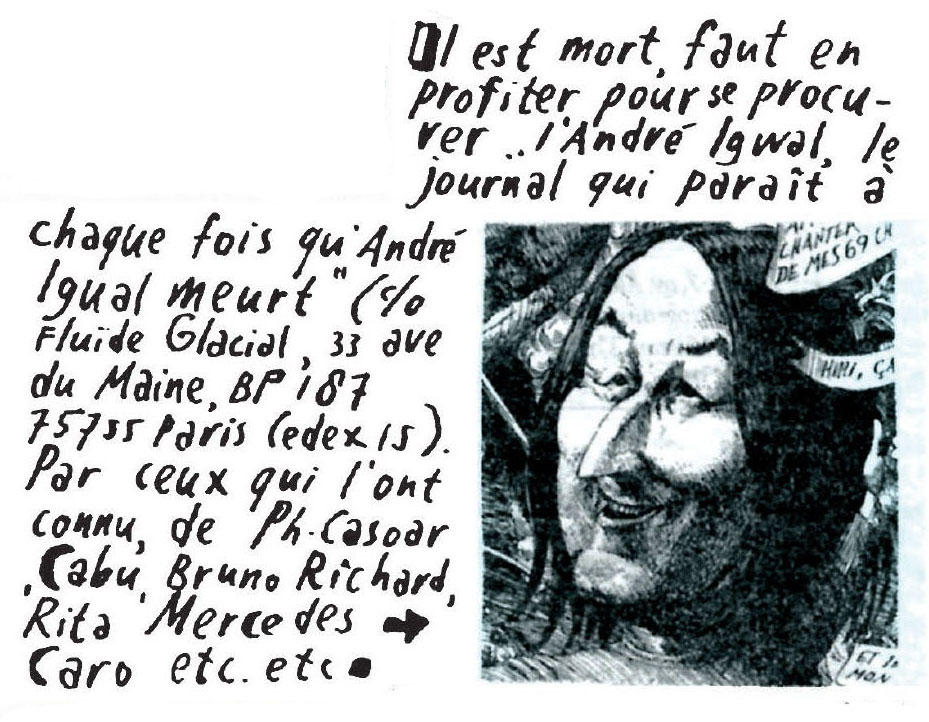 Il est mort, faut en
profiter pour se procu-
rer .. l'André Igwal, le
journal qui paraît à
chaque fois qu'André
Igual meurt" (c/o
Fluide Glacial, 33 ave
du Maine, BP 187
75755 Paris Cedex 15).
Par ceux qui l'ont
connu, de Ph. Casoar
, Cabu, Bruno Richard,
Rita Mercedes →
Caro etc. etc.
CHANTER
DE MES 69 CH
HIHI, ÇA
ET
MON